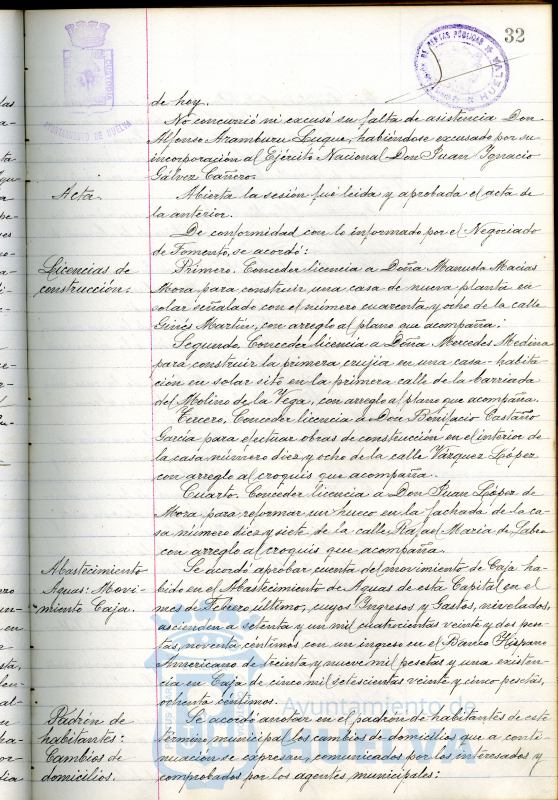 32
AYUNTAMIENTO DE HUELVA
de hoy.
No concurrió ni excusó su falta de asistencia Don
Alfonso Aramburu Luque, habiéndose excusado por su
incorporación al Ejército Nacional Don Juan Ignacio
Gálvez Cañero.
Acta.
Abierta la sesión fué leida y aprobada el acta de
la anterior.
De conformidad con lo informado por el Negociado
de Fomento, se acordó:
Licencias de
construcción:
Primero. Conceder licencia a Doña Manuela Macías
Mora para construir una casa de nueva planta en
solar señalado con el número cuarenta y ocho de la calle
Ginés Martín, con arreglo al plano que acompaña.
Segundo. Conceder licencia a Doña Mercedes Medina
para construir la primera crujía en una casa-habita-
ción en solar sito en la primera calle de la barriada
del Molino de la Vega, con arreglo al plano que acompaña.
Tercero, Conceder licencia a Don Bonifacio Castaño
García para efectuar obras de construcción en el interior de
la casa número diez y ocho de la calle Vázquez López
con arreglo al croquis que acompaña.
Cuarto. Conceder licencia a Don Juan López de
Mora para reformar un hueco en la fachada de la ca-
sa número diez y siete de la calle Rafael María de Labra
con arreglo al croquis que acompaña.
Abastecimiento
Aguas: Movi-
miento Caja.
Se acordó aprobar cuenta del movimiento de Caja ha-
bido en el Abastecimiento de Aguas de esta Capital en el
mes de Febrero último, cuyos Ingresos y Gastos, nivelados,
ascienden a setenta y un mil cuatrocientas veinte y dos pese-
tas, noventa céntimos con un ingreso en el Banco Hispano
Americano de treinta y nueve mil pesetas y una existen-
cia en Caja de cinco mil setescientas veinte y cinco pesetas,
ochenta céntimos.
Padrón de
habitantes:
Cambios de
domicilios.
Se acordó anotar en el padrón de habitantes de este
término municipal los cambios de domicilios que a conti-
nuación se expresan, comunicados por los interesados y
comprobados por los agentes municipales:
Ayuntamiento de
HUELVA